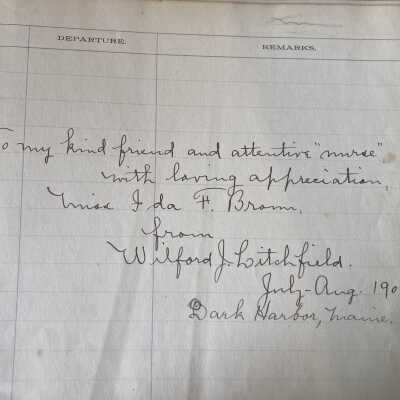 DEPARTURE. REMARKS.
To my kind friend and attentive "nurse"
with loving appreciation,
Miss Ida F. Brown,
from
Wilford J. Litchfield.
July-Aug. 190
Dark Harbor, Maine.